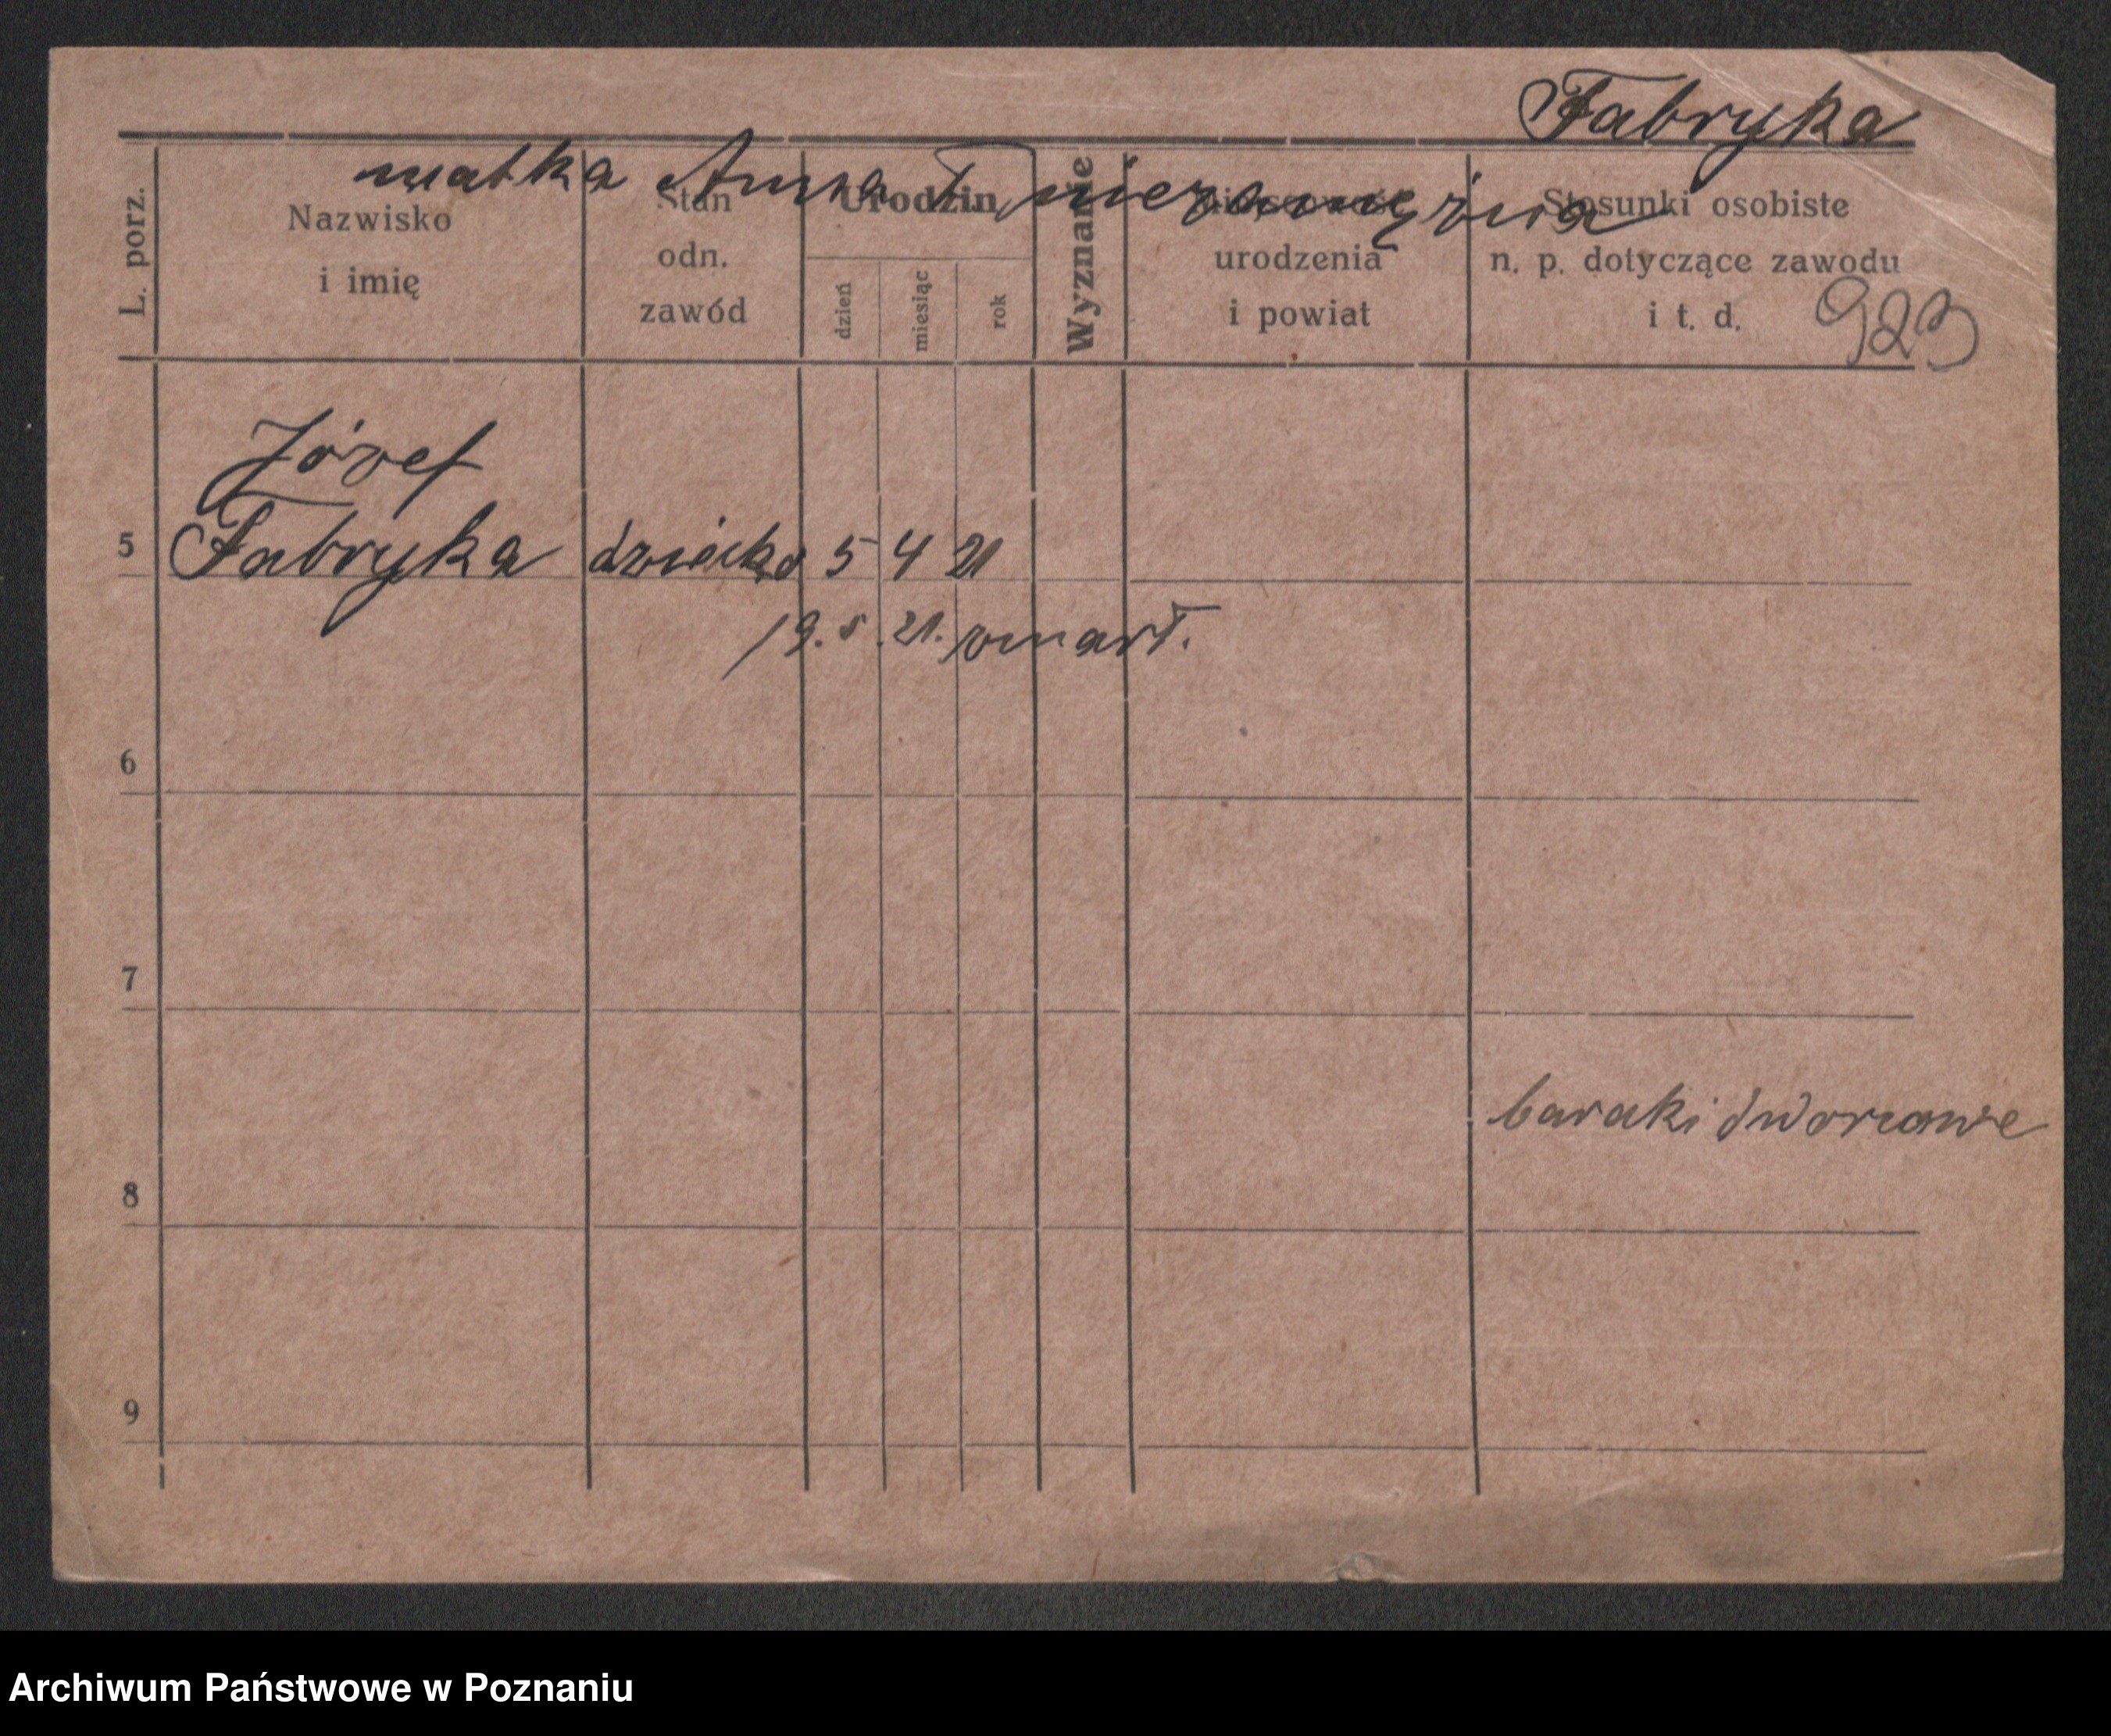 Fabryka
matka Anna F niezamężna
L. porz.
Nazwisko
i imię
Stan
odn.
zawód
Urodzin
dzień
miesiąc
rok
Wyznanie
urodzenia
i powiat
Stosunki osobiste
n. p. dotyczące zawodu
i t. d.
923
Józef
5 Fabryka dziecko 5 4 21
19. 5. 21. zmarł.
6
7
baraki dworcowe
8
9
Archiwum Państwowe w Poznaniu